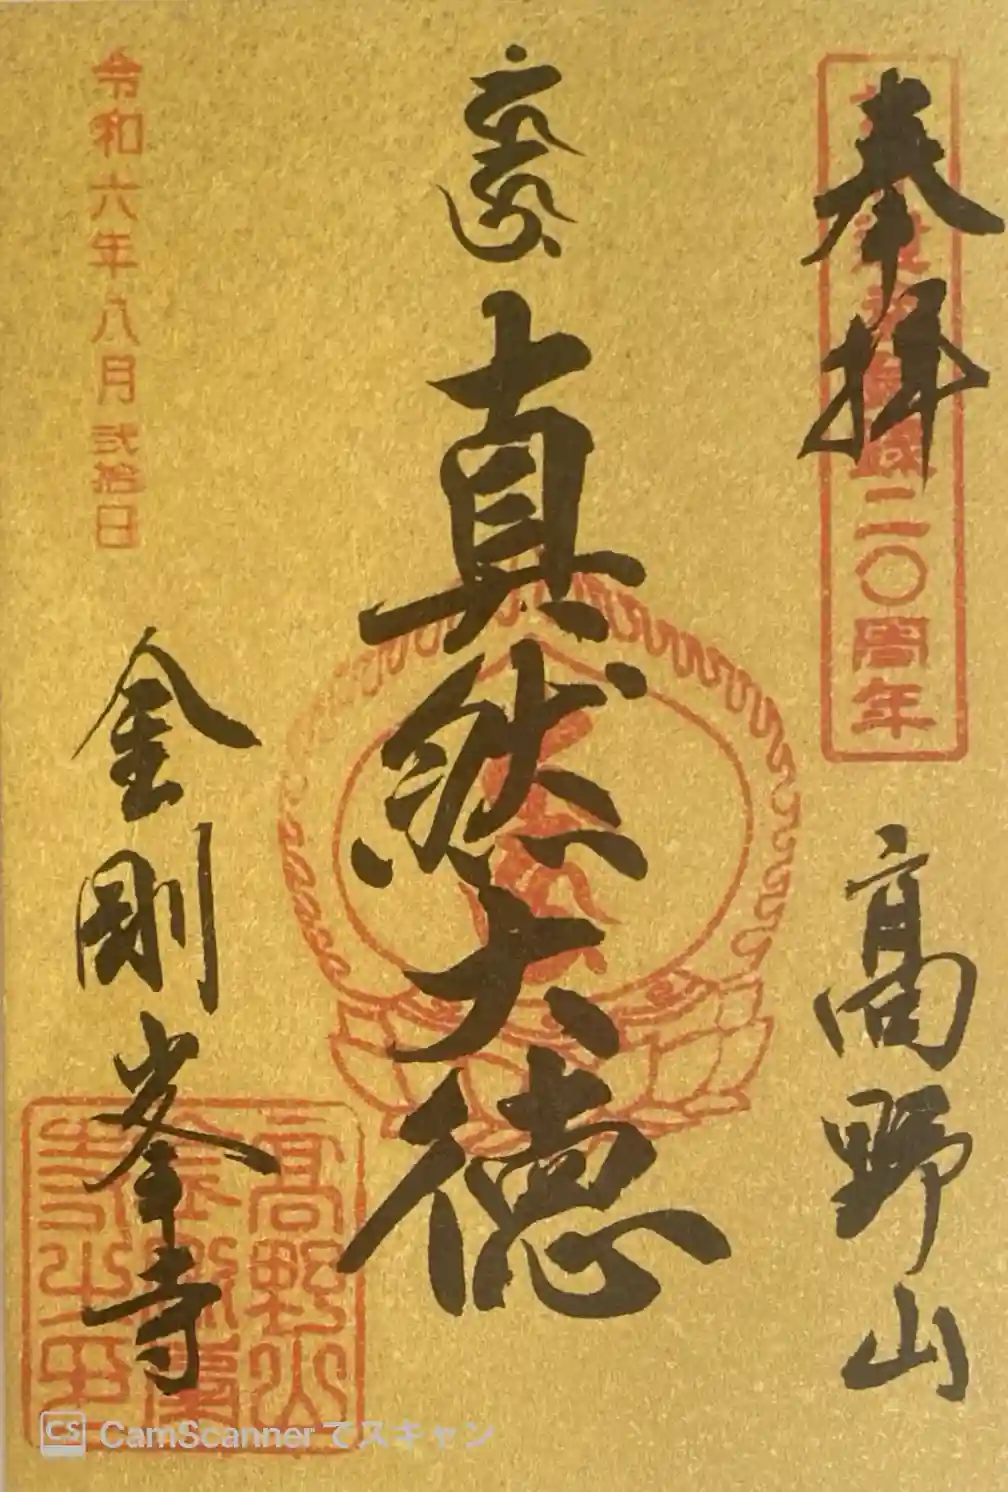 奉拝
二〇周年
高野山
真然大徳
令和六年八月弐拾日
金剛峯寺
高野山
金剛峯
寺之印
CS CamScannerでスキャン